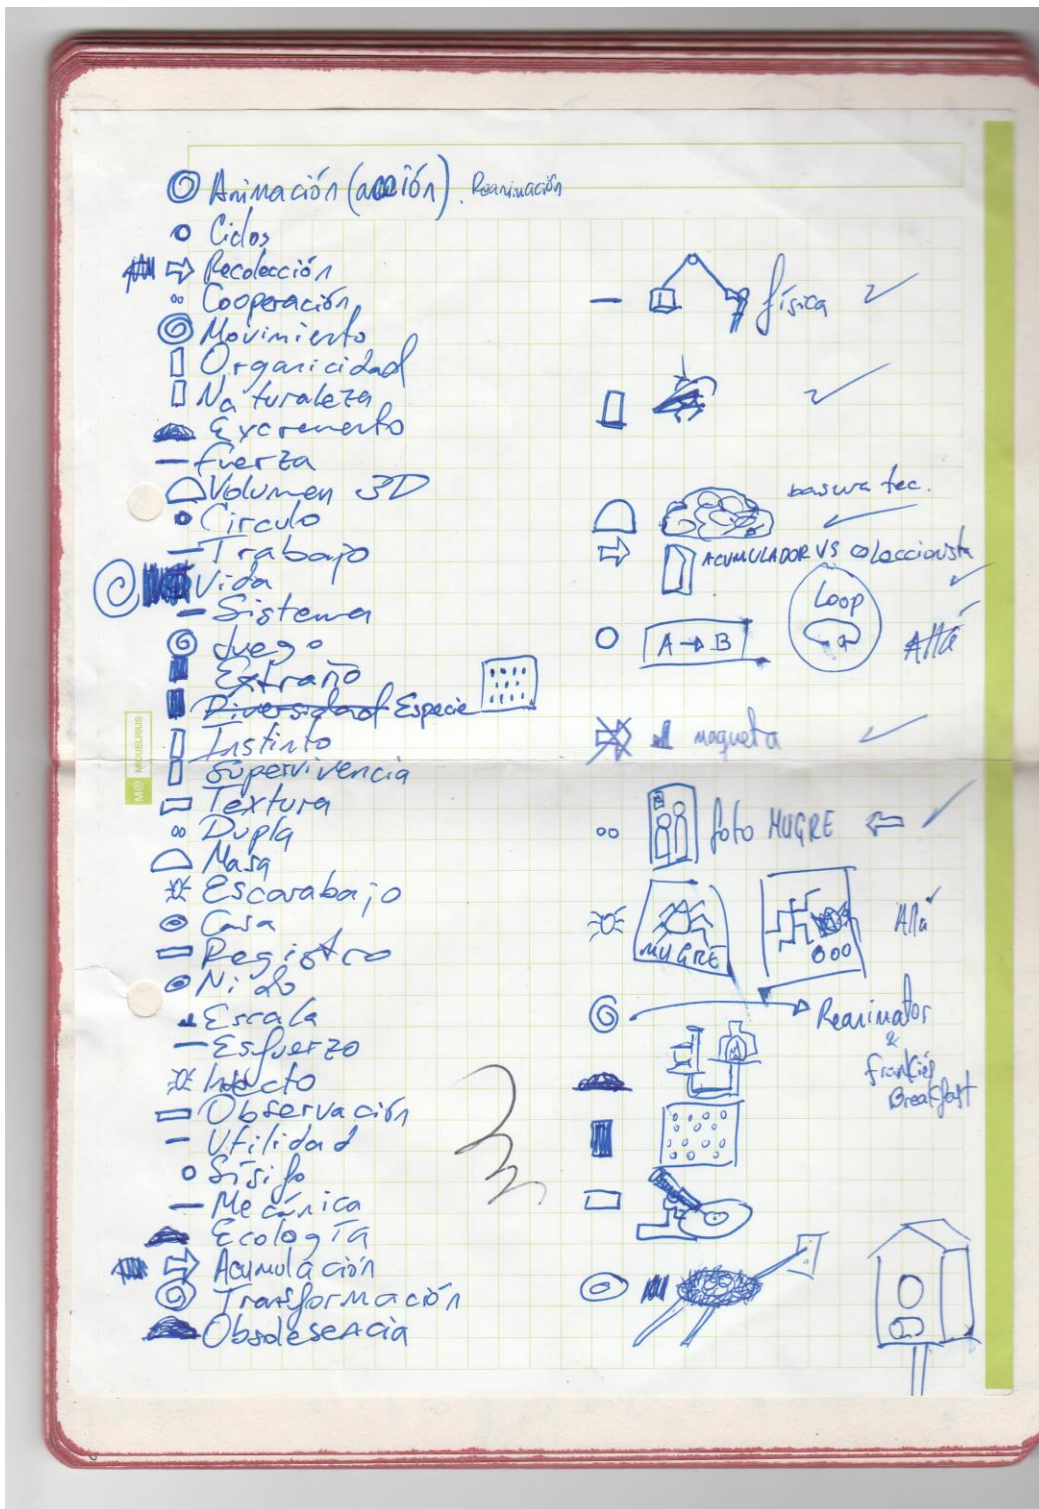 Animación (acción). Reanimación
Ciclos
Recolección
Cooperación
Movimiento
Organicidad
Naturaleza
Excremento
fuerza
Volumen 3D
Circulo
Trabajo
Vida
Sistema
Juego
Extraño
Diversidad Especie
Instinto
Supervivencia
Textura
Dupla
Masa
Escarabajo
Casa
Registro
Nido
Escala
Esfuerzo
Insecto
Observación
Utilidad
Sísifo
Mecánica
Ecología
Acumulación
Transformación
Obsolesencia
física
basura tec.
ACUMULADOR VS coleccionista
Loop
A → B
Allá
maqueta
foto MUGRE
MUGRE
Allá
Reanimator
&
Breakfast
M MIQUELRIUS